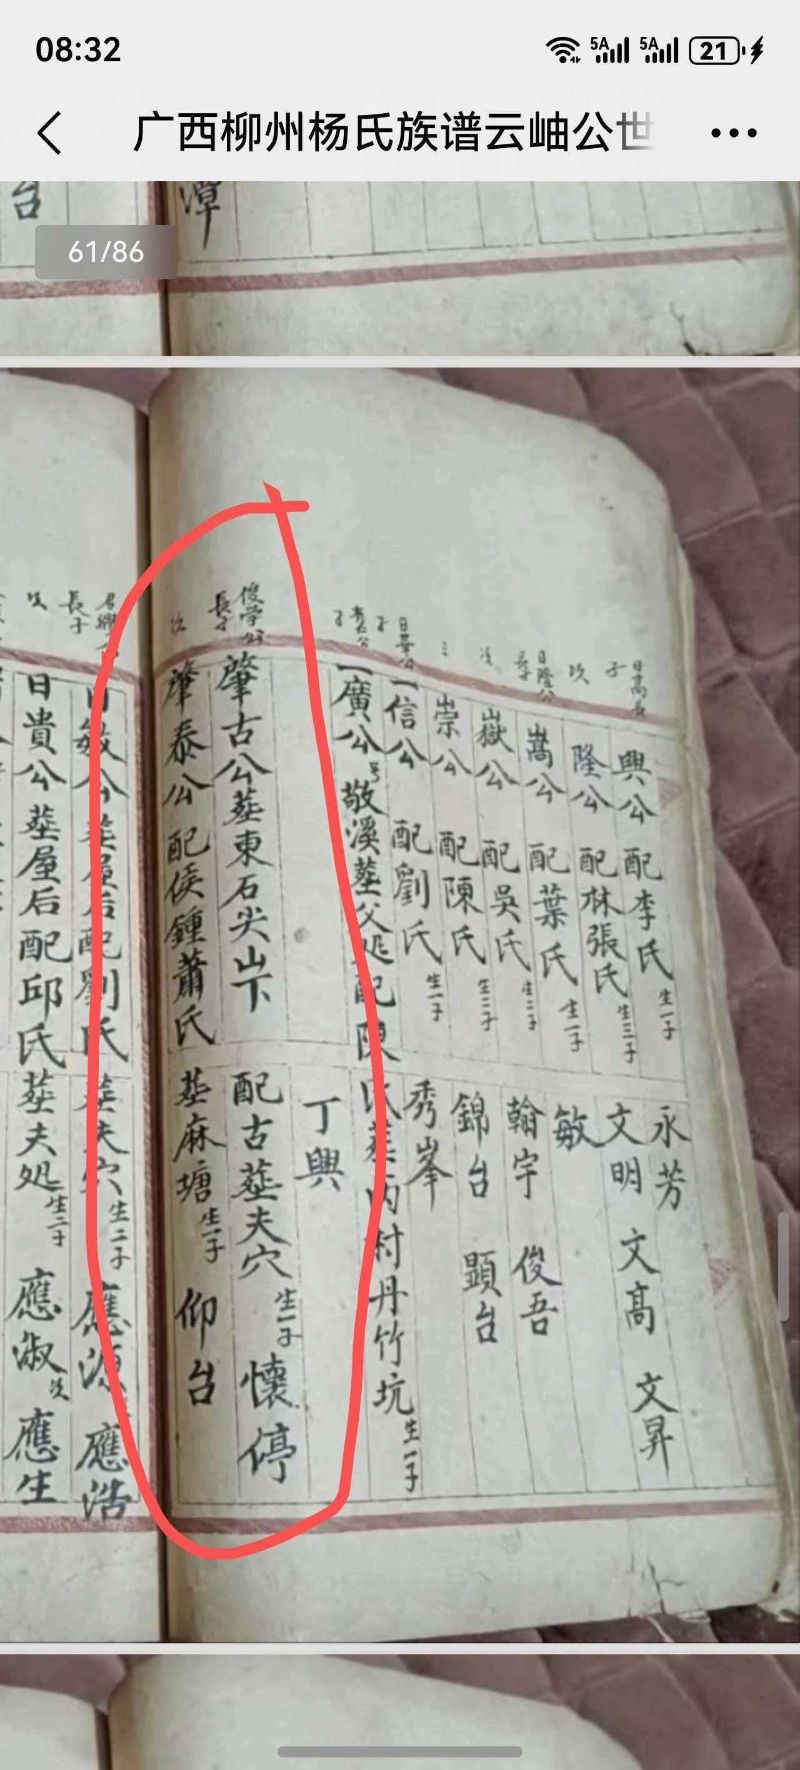 08:32
5A
5A
21
广西柳州杨氏族谱云岫公世
61/86
台
潭
日高長
子
興公 配李氏 生一子 永芳
次
隆公 配林張氏 生三子 文明 文高 文昇
日隆公
長子
嵩公 配葉氏 生一子 敏
次
嶽公 配吳氏 生二子 翰宇 俊吾
三
崇公 配陳氏 生二子 錦台 顯台
日華公
子
一信公 配劉氏 生一子 秀峯
子
一廣公号敬溪葬父処配陳氏葬內村丹竹坑 生一子
丁興
俊学公
長子
肇古公葬東石尖山下 配古葬夫穴 生一子 懷停
次
肇泰公配侯鍾蕭氏 葬麻塘 生一子 仰台
長子
日敏公葬屋后配劉氏 葬夫穴 生二子 應源 應浩
次
日貴公葬屋后配邱氏 葬夫処 生二子 應淑 次 應生